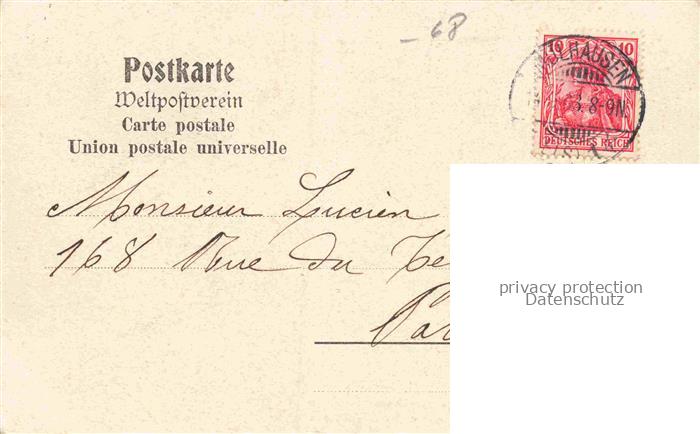 68
Postkarte
Weltpostverein
Carte postale
Union postale universelle
10 10
MÜLHAUSEN
8-9N.
DEUTSCHES REICH
Monsieur Lucien
168 Rue du Te
Par
privacy protection
Datenschutz